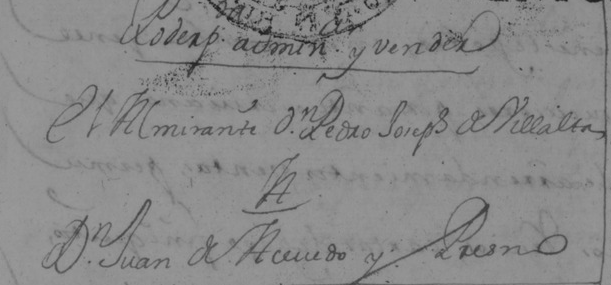 Poder pª admin y vender
El Almirante D.n Pedro Joseph de Villalta
A
D.n Juan de Acevedo y Presno